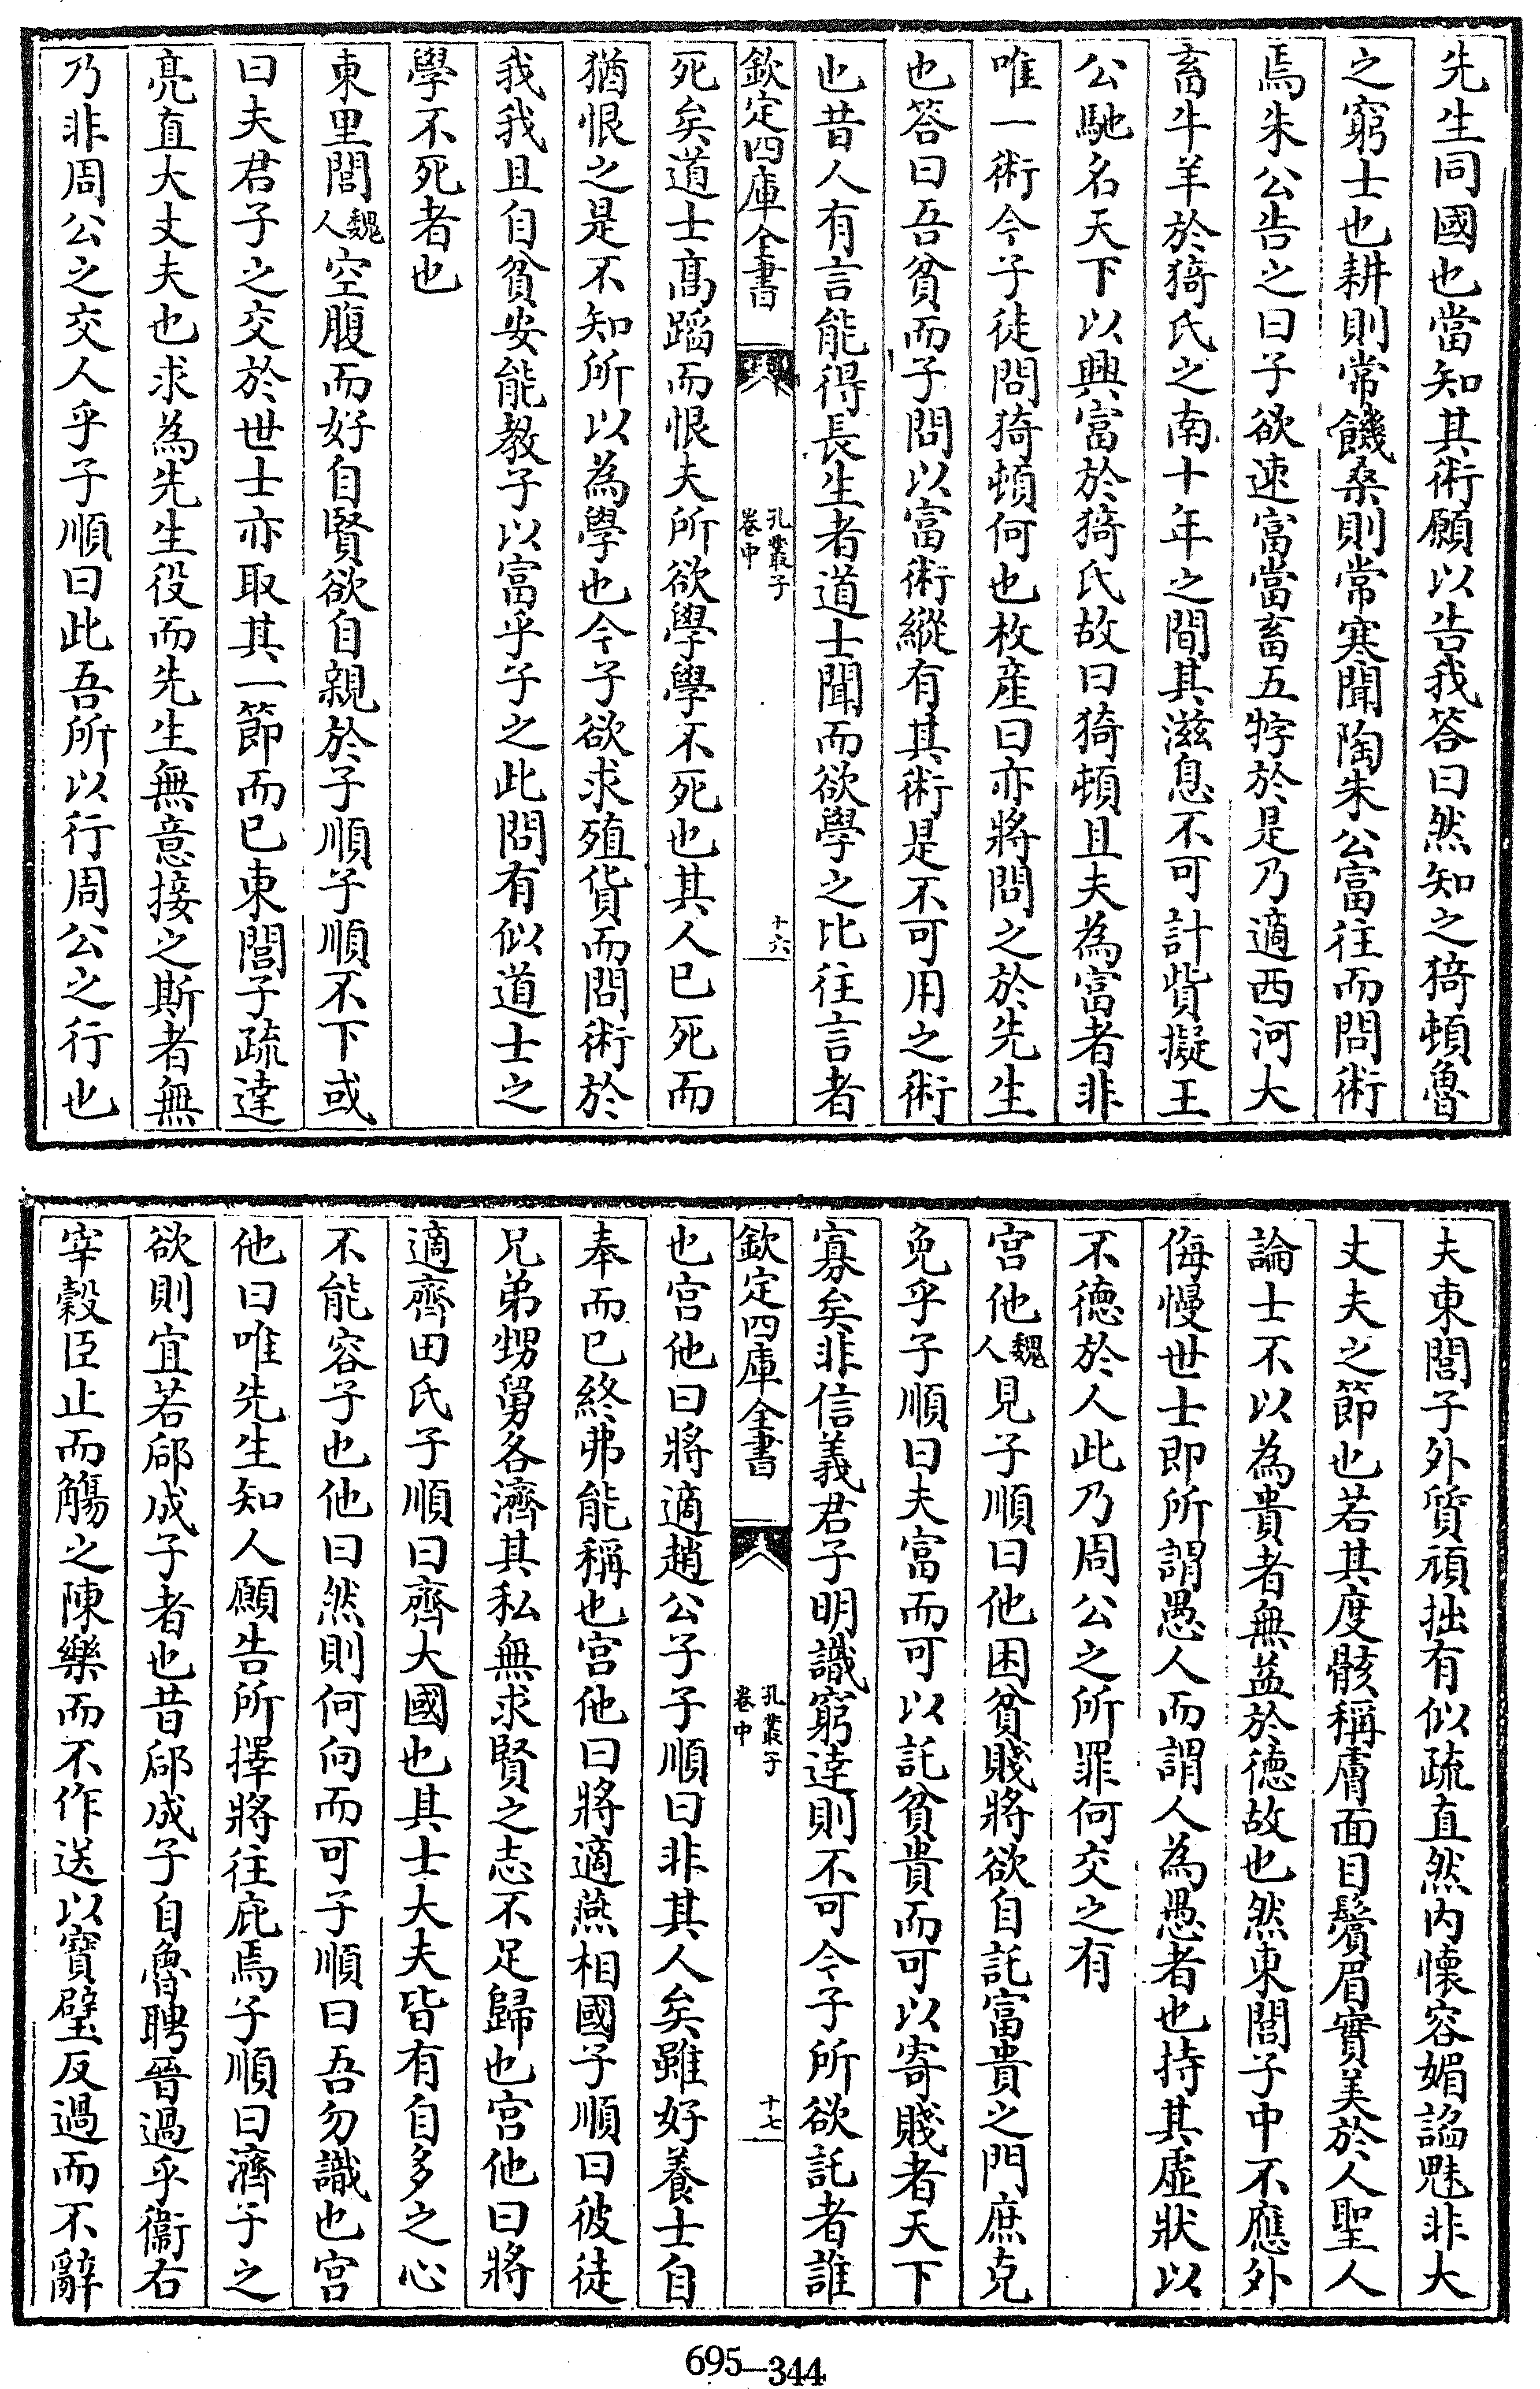 先生同國也當知其術願以告我答曰然知之猗頓魯
之窮士也耕則常饑桑則常寒聞陶朱公富往而問術
焉朱公告之曰子欲速富當畜五牸於是乃適西河大
畜牛羊於猗氏之南十年之間其滋息不可計貲擬王
公馳名天下以興富於猗氏故曰猗頓且夫為富者非
唯一術今子徒問猗頓何也枚產曰亦將問之於先生
也答曰吾貧而子問以富術縱有其術是不可用之術
也昔人有言能得長生者道士聞而欲學之比往言者
欽定四庫全書 孔叢子 卷中 十六
死矣道士高蹈而恨夫所欲學學不死也其人已死而
猶恨之是不知所以為學也今子欲求殖貨而問術於
我我且自貧安能教子以富乎子之此問有似道士之
學不死者也
東里閭魏人空腹而好自賢欲自親於子順子順不下或
曰夫君子之交於世士亦取其一節而已東閭子疏達
亮直大丈夫也求為先生役而先生無意接之斯者無
乃非周公之交人乎子順曰此吾所以行周公之行也
夫東閭子外質頑拙有似疏直然内懷容媚諂魅非大
丈夫之節也若其度骸稱膚面目鬢眉實美於人聖人
論士不以為貴者無益於德故也然東閭子中不應外
侮慢世士即所謂愚人而謂人為愚者也持其虛狀以
不德於人此乃周公之所罪何交之有
宮他魏人見子順曰他困貧賤將欲自託富貴之門庶克
免乎子順曰夫富而可以託貧貴而可以寄賤者天下
寡矣非信義君子明識窮達則不可今子所欲託者誰
欽定四庫全書 孔叢子 卷中 十七
也宮他曰將適趙公子子順曰非其人矣雖好養士自
奉而已終弗能稱也宮他曰將適燕相國子順曰彼徒
兄弟甥舅各濟其私無求賢之志不足歸也宮他曰將
適齊田氏子順曰齊大國也其士大夫皆有自多之心
不能容子也他曰然則何向而可子順曰吾勿識也宮
他曰唯先生知人願告所擇將往庇焉子順曰濟子之
欲則宜若郈成子者也昔郈成子自魯聘晉過乎衞右
宰穀臣止而觴之陳樂而不作送以寶璧反過而不辭
695-344